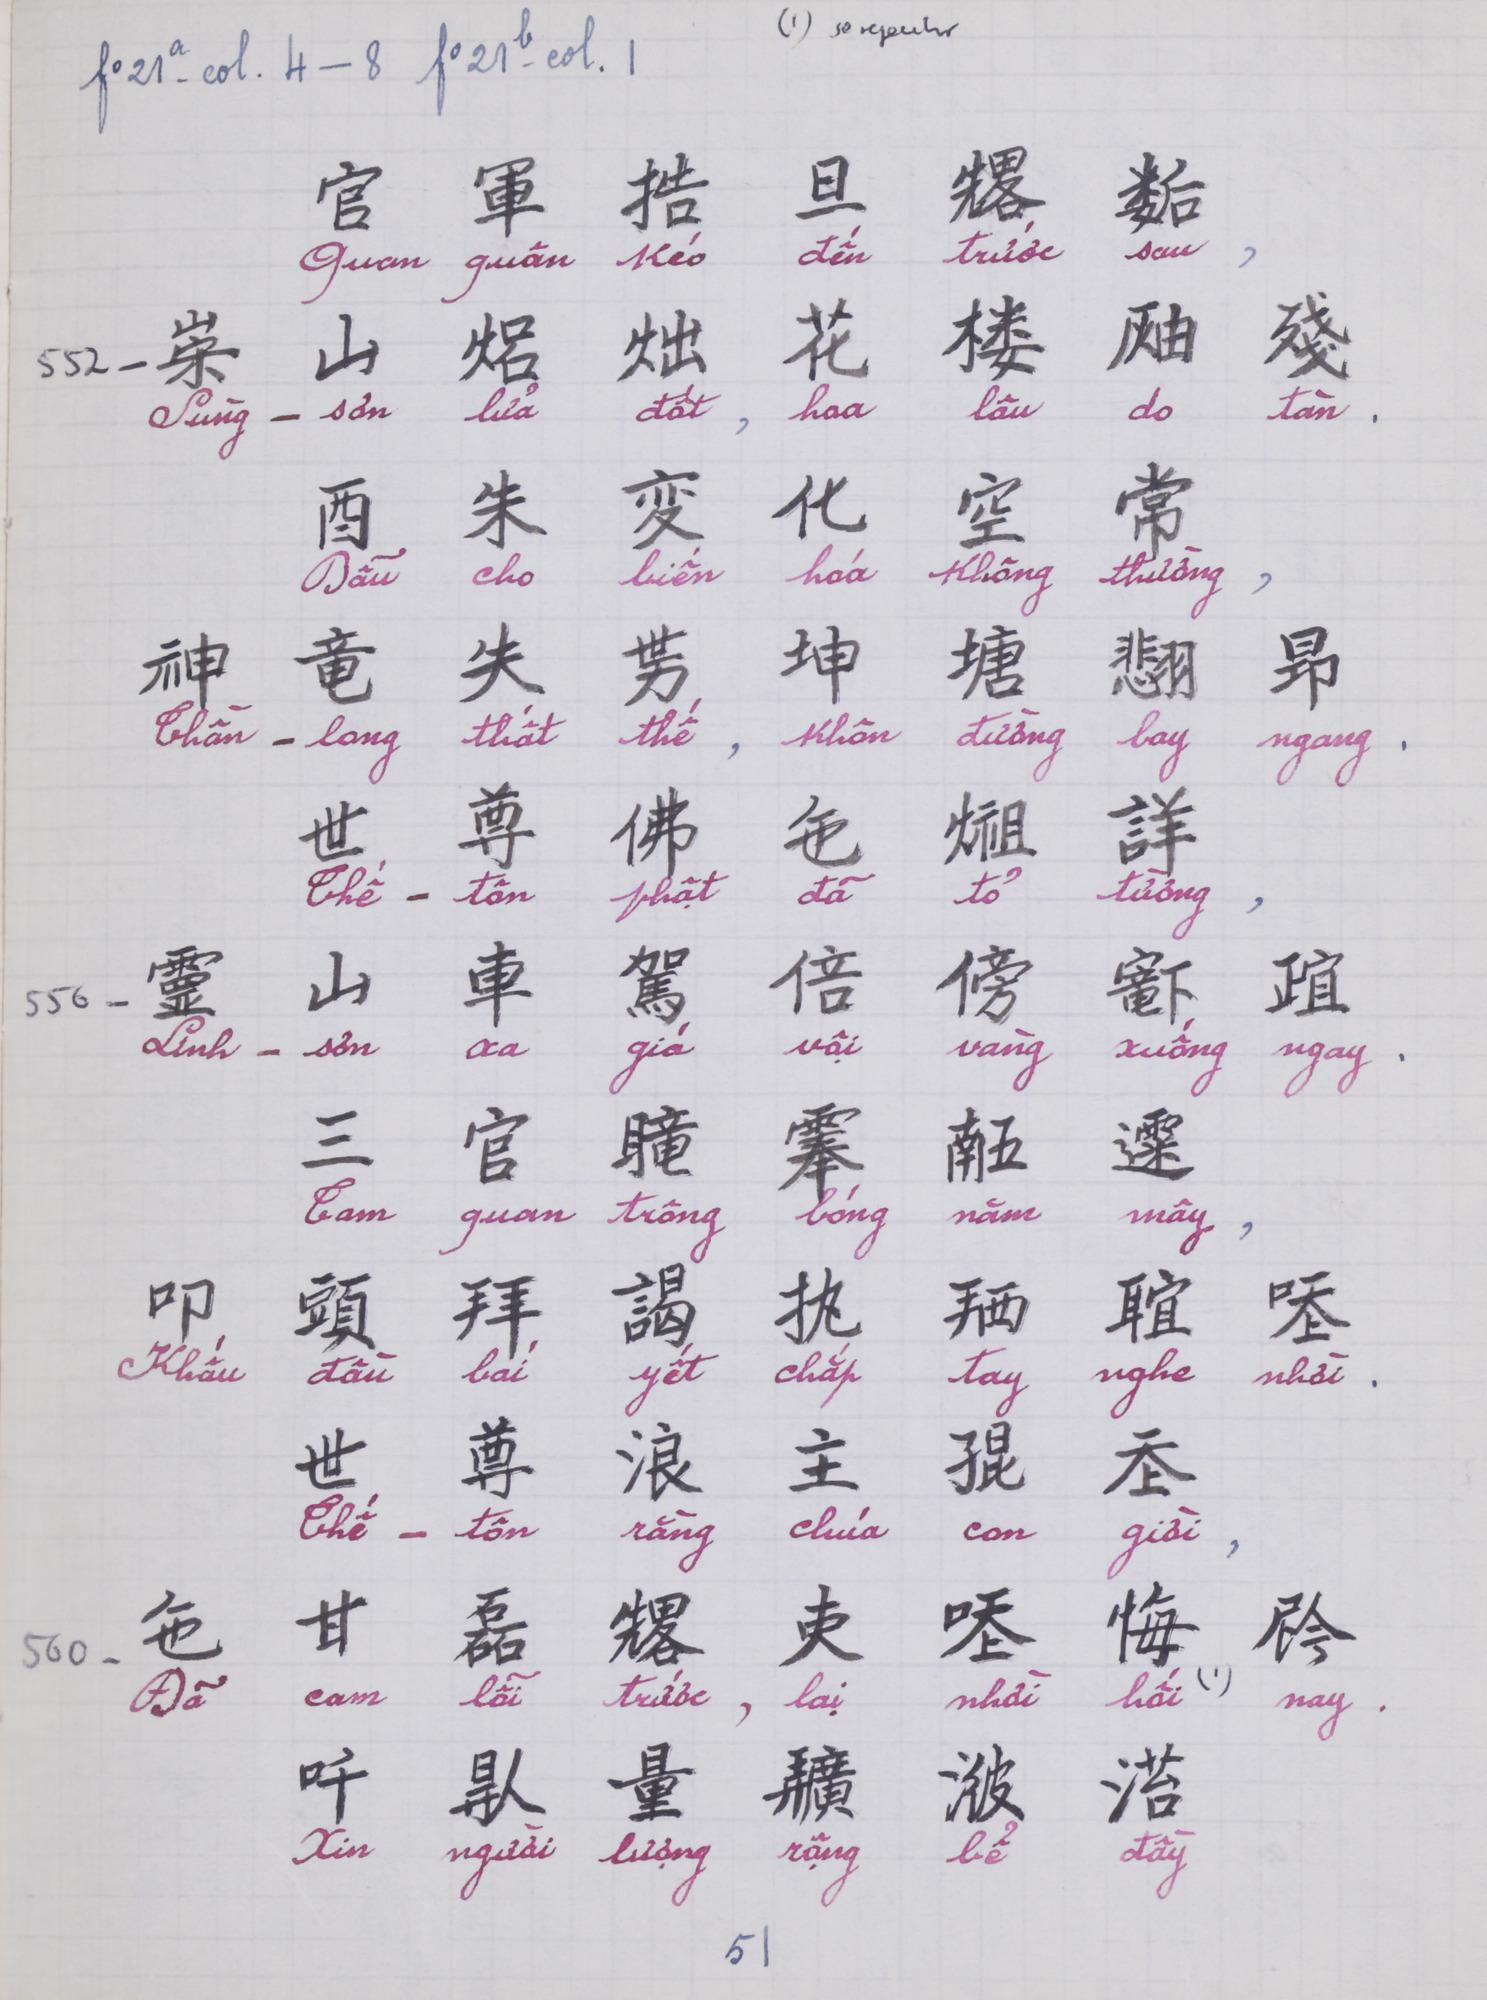 fº 21ᵃ - col. 4 — 8 fº 21ᵇ - col. 1
(1)
官 軍 捁 旦 𠓀 𢖖
Quan quân kéo đến trước sau,
552 - 崇 山 焒 炪 花 楼 𪽝 残
Sùng - sơn lửa đốt, hoa lâu do tàn.
酉 朱 変 化 空 常
Dẫu cho biến hoá không thường,
神 竜 失 势 坤 塘 𫅫 昂
Thần - long thất thế, khôn đường bay ngang.
世 尊 佛 㐌 𤏣 詳
Thế - tôn phật đã tỏ tường,
556 - 靈 山 車 駕 倍 傍 𡬈 𣦍
Linh - sơn xa giá vội vàng xuống ngay.
三 官 𥊣 䏾 𠄼 𩄲
Tam quan trông bóng năm mây,
叩 頭 拜 謁 执 𢬣 𦖑 𠳒
Khấu đầu bái yết chắp tay nghe nhời.
世 尊 浪 主 𡥵 𡗶
Thế - tôn rằng chúa con giời,
560 - 㐌 甘 磊 𠓀 吏 𠳒 悔 𠉞
Đã cam lỗi trước, lại nhời hối (1) nay.
吀 𠊛 量 𢌌 𣷭 㴜
Xin người lượng rộng bể đầy
51